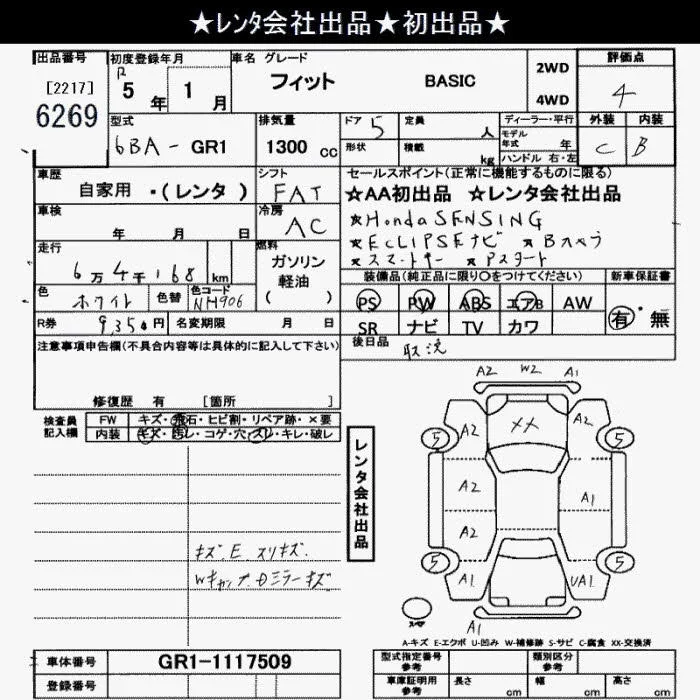 ★レンタ会社出品★初出品★
出品番号
[2217]
6269
初度登録年月
R
5年 1月
車名 グレード
フィット BASIC
2WD
4WD
評価点
4
外装 内装
C B
型式
6BA- GR1
排気量
1300 cc
ドア 5
形状
定員 人
積載 kg
ディーラー・平行
モデル年式 年
ハンドル 右・左
車歴
自家用 ・(レンタ )
シフト
FAT
車検
年 月 日
冷房
AC
走行
6万4千168 km
燃料
ガソリン
軽油
( )
色
ホワイト
色替
色コード
NH906
R券 9350円
名変期限 月 日
セールスポイント(正常に機能するものに限る)
☆AA初出品 ☆レンタ会社出品
★Honda SENSING
★ECLIPSEナビ ★Bカメラ
★スマートキー ★Pスタート
装備品(純正品に限り○をつけてください)
新車保証書
PS PW ABS エアB AW
SR ナビ TV カワ
有・無
後日品
取説
注意事項申告欄(不具合内容等は具体的に記入して下さい)
修復歴 有 [箇所 ]
検査員記入欄
FW キズ・飛石・ヒビ割・リペア跡・×要
内装 キズ・汚レ・コゲ・穴・スレ・キレ・破レ
レンタ会社出品
キズ.E スリキズ.
Wキャップ.Dミラーキズ
A2 W2 A1
A2 XX A2
5 5
A2 A1
A2
5 5
A1 UA1
A1
スペア
A-キズ E-エクボ U-凹み W-補修跡 S-サビ C-腐食 XX-交換済
車体番号 GR1-1117509
登録番号
型式指定番号 参考
類別区分 参考
車庫証明用 参考
長さ cm 幅 cm 高さ cm